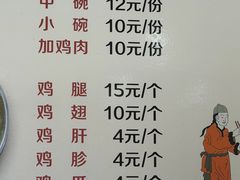 中 碗 12元/份
小 碗 10元/份
加鸡肉 10元/份
鸡 腿 15元/个
鸡 翅 10元/个
鸡 肝 4元/个
鸡 胗 4元/个
鸡 4元/个